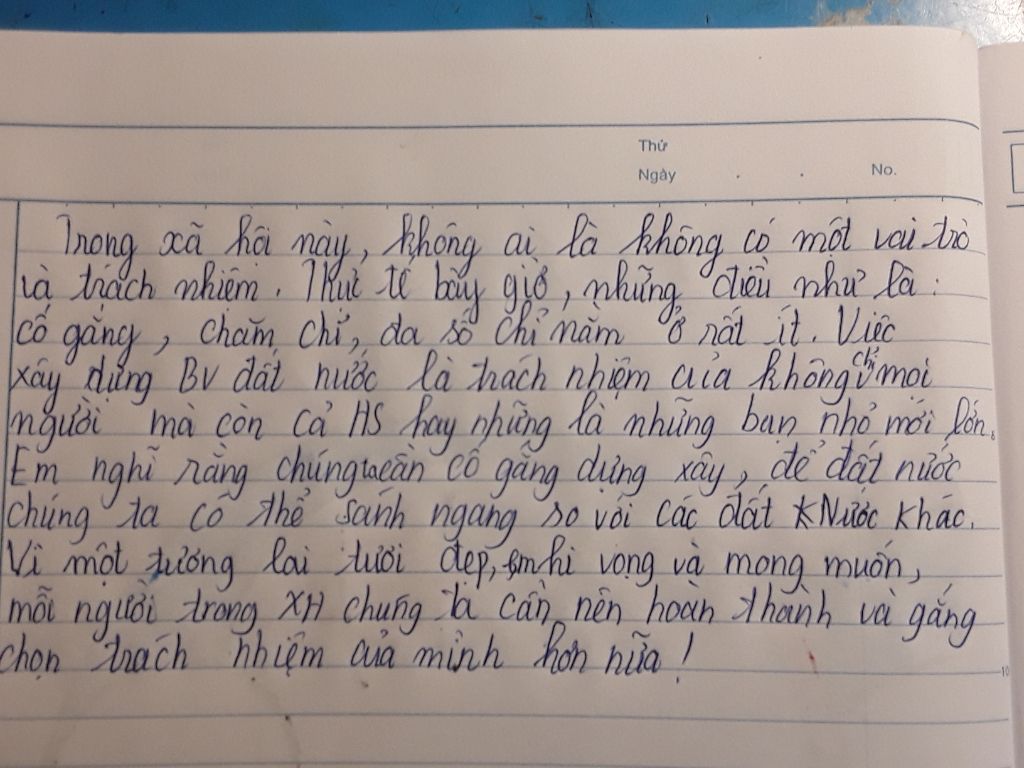 Thứ
Ngày . . No.
Trong xã hội này, không ai là không có một vai trò
và trách nhiệm. Thực tế bây giờ, những điều như là:
cố gắng, chăm chỉ, đa số chỉ nằm ở rất ít. Việc
xây dựng BV đất nước là trách nhiệm của không chỉ mọi
người mà còn cả HS hay những là những bạn nhỏ mới lớn.
Em nghĩ rằng chúng ta cần cố gắng dựng xây, để đất nước
chúng ta có thể sánh ngang so với các đất Nước khác.
Vì một tương lai tươi đẹp, em hi vọng và mong muốn,
mỗi người trong XH chúng ta cần nên hoàn thành và gắng
chọn trách nhiệm của mình hơn nữa!
10